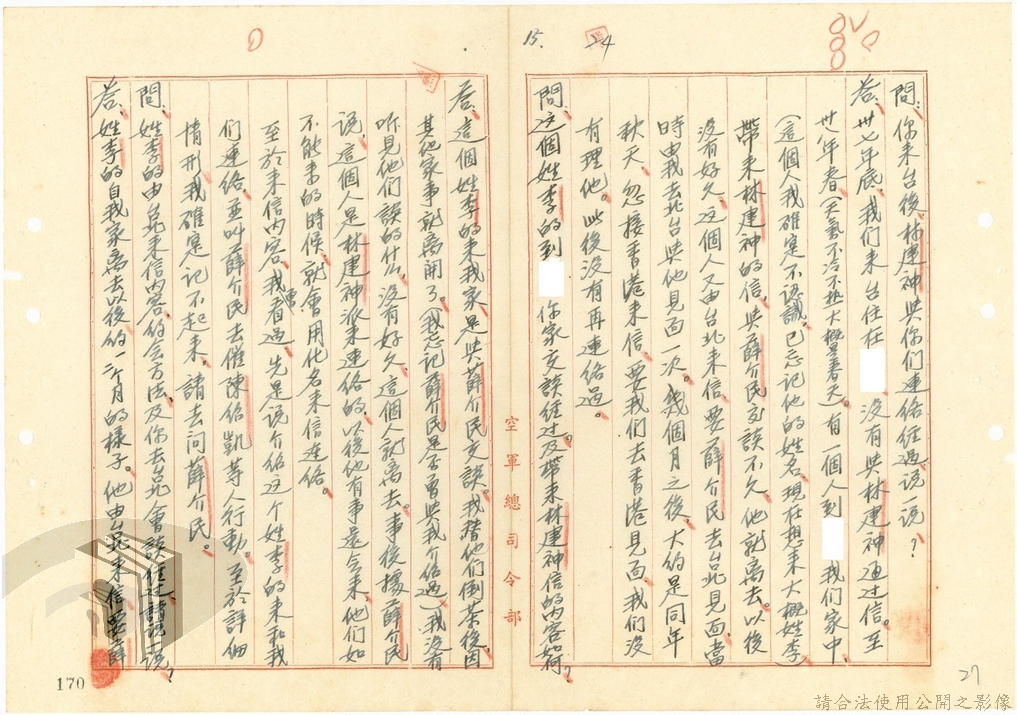 15.
問:你来台後,林建神與你們連絡經過說一說?
答:卅七年底,我们来台住在 没有與林建神通过信。至
卅八年春(天氣不冷不热大概是春天)。有一個人到 我们家中,
(這個人我確实不認識,已忘记他的姓名,现在想来大概姓李)
帶来林建神的信,與薛介民交談不久他就离去。以後
没有好久,这個人又由台北来信,要薛介民去台北見面,當
時由我去北台與他見面一次。幾個月之後,大约是同年
秋天,忽接香港来信,要我们去香港見面,我们没
有理他。此後没有再連絡過。
問:这個姓李的到 你家交談经过及帶来林建神信的内容如何?
空軍總司令部
答:這個姓李的来我家,是與薛介民交談。我替他们倒茶後,因
其他家事就离開了。(我忘记薛介民是否曾與我介绍過)我没有
听見他们談的什么,没有好久這個人就离去。事後據薛介民
说,這個人是林建神派来連络的,以後他有事還会来,他们如
不能来的時候,就會用化名来信连络。
至於来信内容,我曾看过,先是说介绍这个姓李的来和我
们連络,並叫薛介民去催陳绍凱等人行動。至於詳细
情形我確实记不起来,請去问薛介民。
問:姓李的由台北来信内容,约会方法,及你去台北會談经过請说一说?
答:姓李的自我家离去以後的一二个月的樣子。他由台北来信要薛
170
27
請合法使用公開之影像